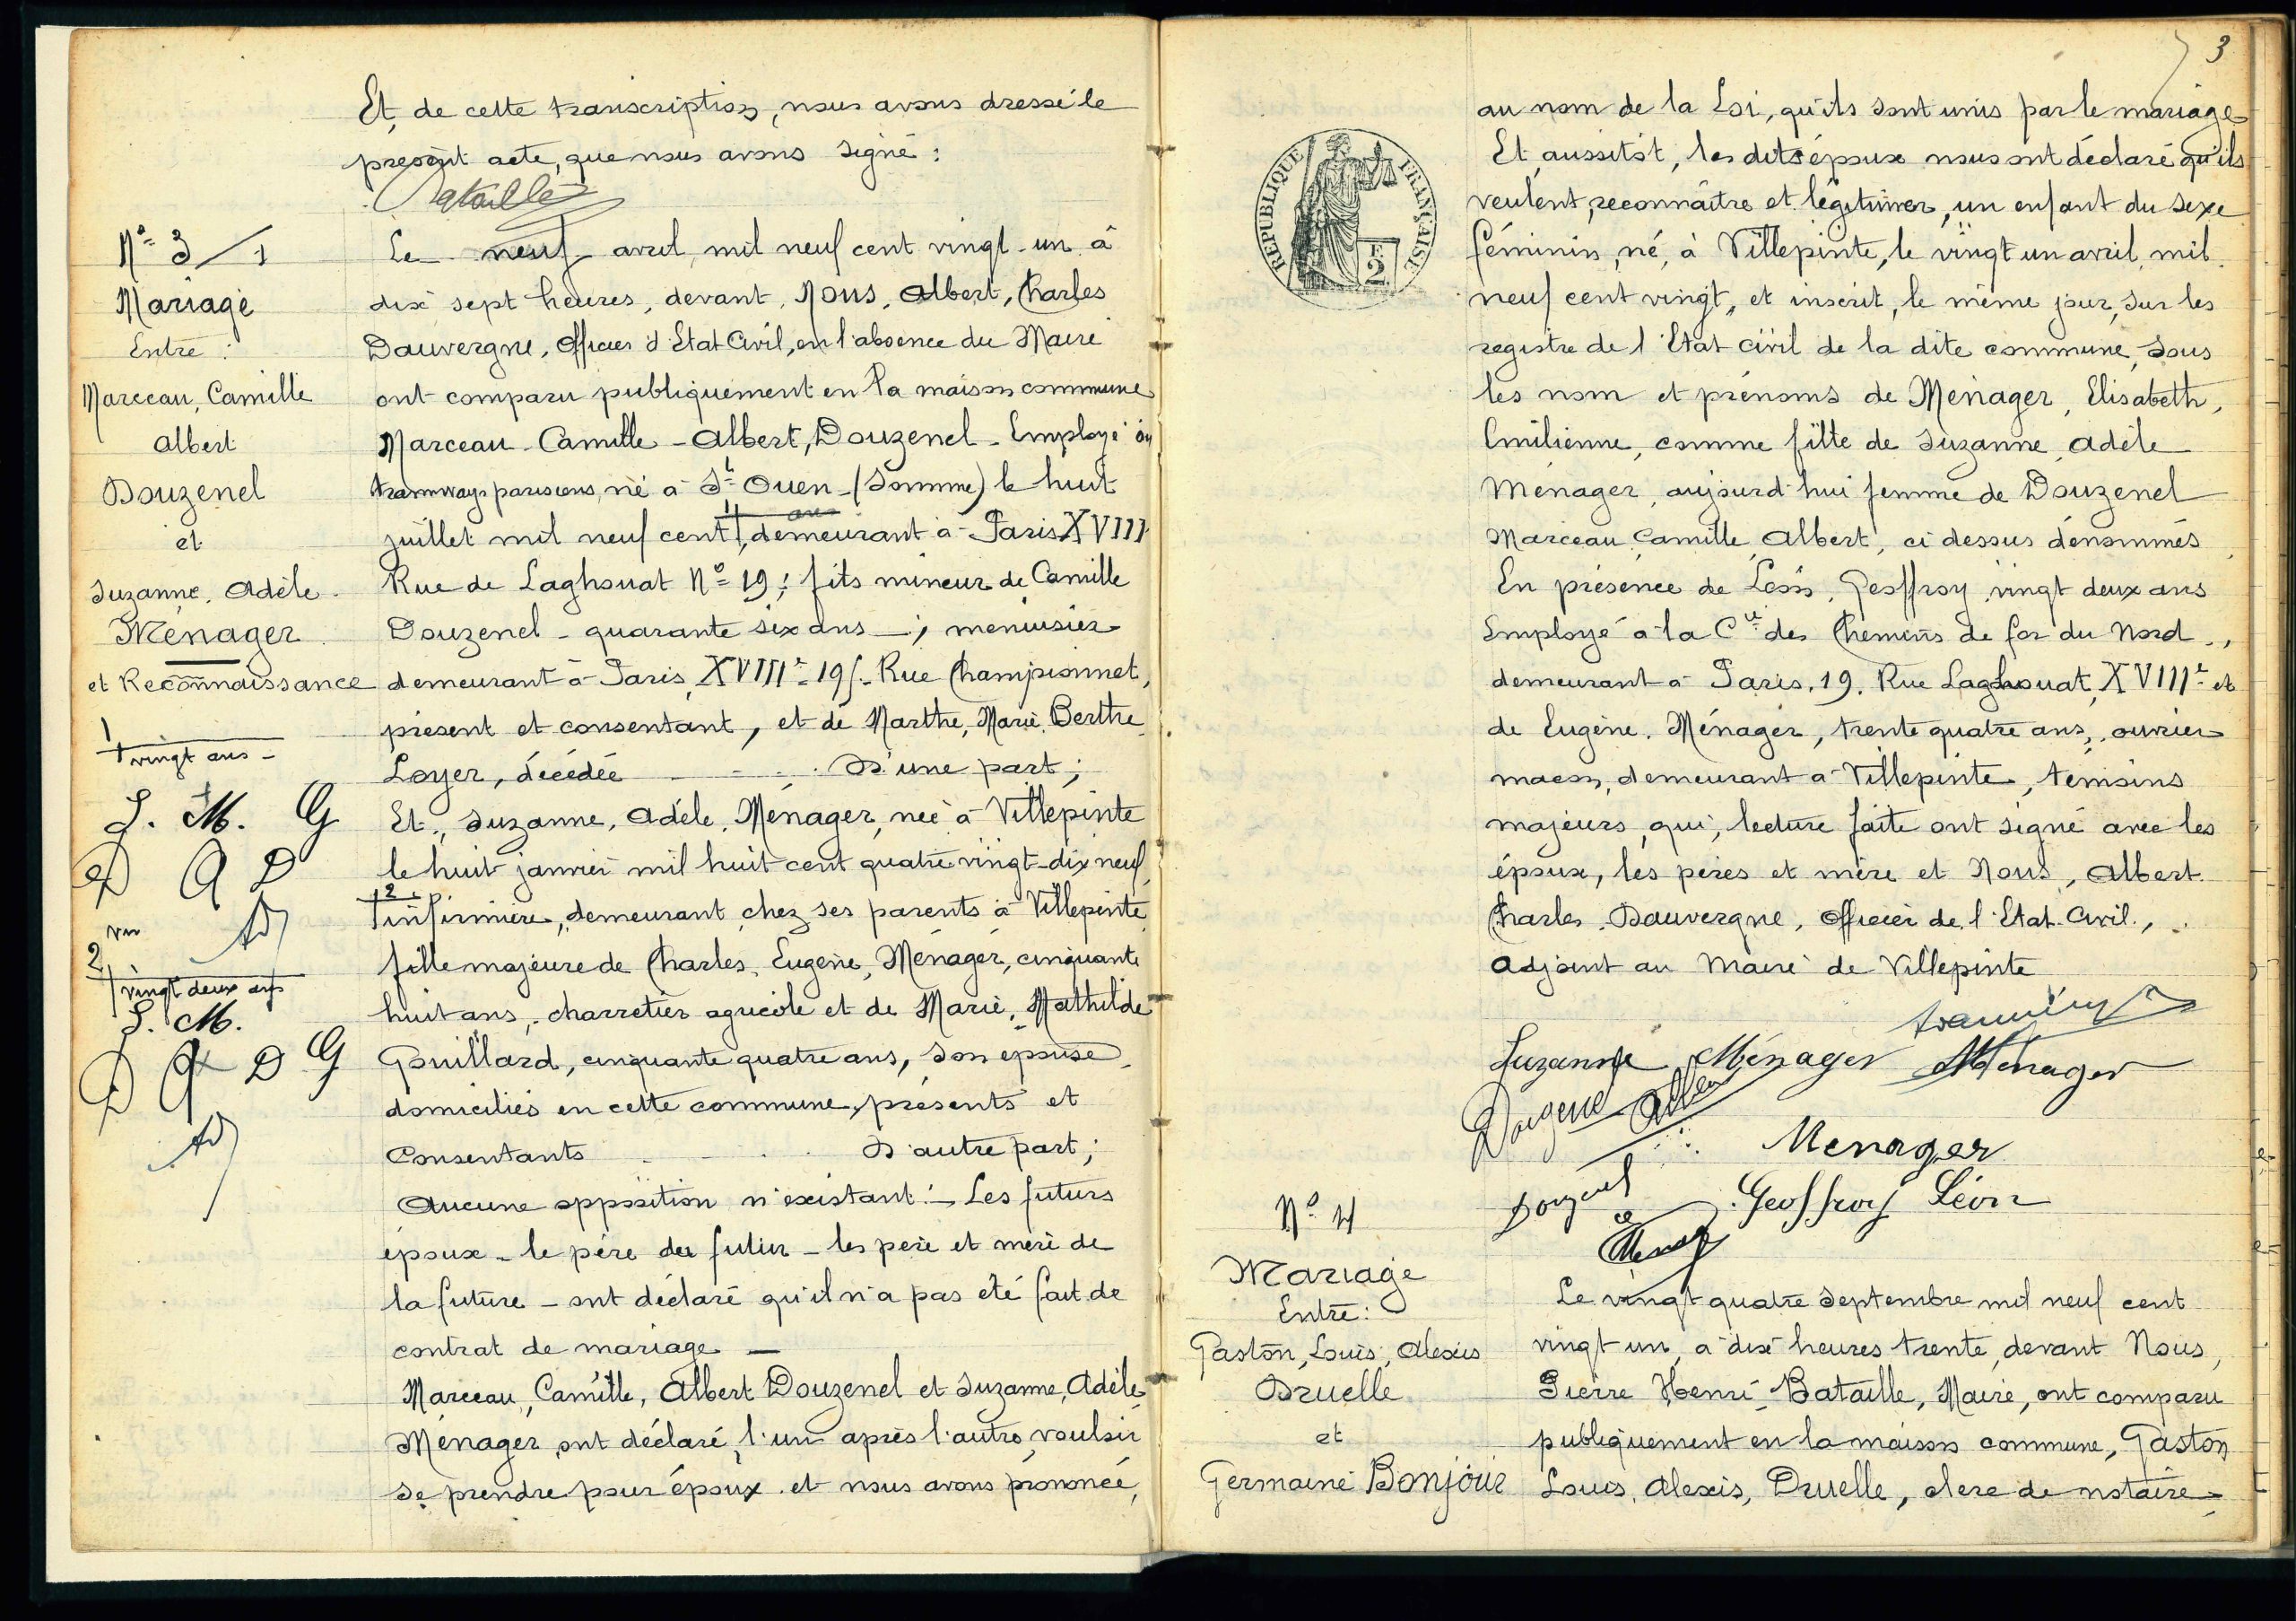 Et, de cette transcription, nous avons dressé le
présent acte, que nous avons signé :
Bataille
N° 3 / 1
Mariage
Entre :
Marceau, Camille
Albert
Douzenel
et
Suzanne, Adèle
Ménager
et Reconnaissance
1
vingt ans -
S. M. G
D A D
AD
2
vingt deux ans
S. M.
D A D G
AD
Le neuf avril, mil neuf cent vingt-un à
dix sept heures, devant, Nous, Albert, Charles
Dauvergne, Officier d'Etat Civil, en l'absence du Maire
ont comparu publiquement en la maison commune
Marceau-Camille-Albert, Douzenel-Employé
tramways parisiens, né à St Ouen-(Somme) le huit
juillet mil neuf cent, demeurant à Paris XVIII
Rue de Laghouat N° 19; fils mineur de Camille
Douzenel - quarante six ans -, menuisier
demeurant à Paris, XVIIIe- Rue Championnet,
présent et consentant, et de Marthe, Marie, Berthe
Loyer, décédée D'une part;
Et, Suzanne, Adèle, Ménager, née à Villepinte
le huit janvier mil huit cent quatre vingt-dix neuf
2
infirmière, demeurant chez ses parents à Villepinte
fille majeure de Charles, Eugène, Ménager, cinquante
huit ans, charretier agricole et de Marie, Mathilde
Gouillard, cinquante quatre ans, son épouse
domiciliés en cette commune, présents et
Consentants D'autre part;
Aucune opposition n'existant - Les futurs
époux - le père du futur - les père et mère de
la future - ont déclaré qu'il n'a pas été fait de
contrat de mariage -
Marceau, Camille, Albert Douzenel et Suzanne, Adèle
Ménager, ont déclaré, l'un après l'autre, vouloir
se prendre pour époux et nous avons prononcé,
3
REPUBLIQUE FRANÇAISE
2
au nom de la Loi, qu'ils sont unis par le mariage
Et, aussitôt, les dits époux nous ont déclaré qu'ils
veulent, reconnaître et légitimer, un enfant du sexe
féminin, né, à Villepinte, le vingt un avril, mil
neuf cent vingt, et inscrit, le même jour, sur les
registre de l'Etat civil de la dite commune, sous
les nom et prénoms de Ménager, Elisabeth,
Emilienne, comme fille de Suzanne, Adèle
Ménager, aujourd'hui femme de Douzenel
Marceau, Camille, Albert, ci dessus dénommés
En présence de Léon, Geoffroy, vingt deux ans
Employé à la Cie des Chemins de fer du Nord,
demeurant à Paris, 19, Rue Laghouat, XVIIIe et
de Eugène, Ménager, trente quatre ans, ouvrier
maçon, demeurant à Villepinte, témoins
majeurs, qui, lecture faite ont signé avec les
époux, les pères et mère et Nous, Albert
Charles, Dauvergne, Officier de l'Etat-Civil,
Adjoint au Maire de Villepinte
Suzanne Ménager Ménager
Douzenel Albert
Menager
Douzenel
Geoffroy Léon
N° 4
Mariage
Entre :
Gaston, Louis, Alexis
Druelle
et
Germaine Bonjour
Le vingt quatre septembre mil neuf cent
vingt un, à dix heures trente, devant Nous,
Pierre Henri Bataille, Maire, ont comparu
publiquement en la maison commune, Gaston
Louis, Alexis, Druelle, clerc de notaire